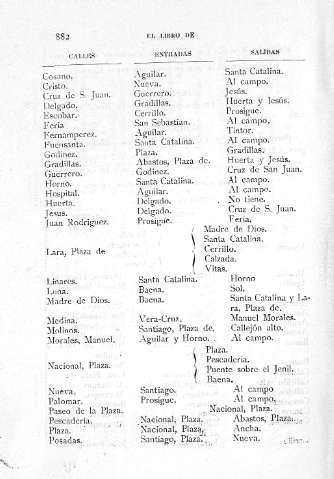 882 EL LIBRO DE
CALLES ENTRADAS SALIDAS
Cosano. Aguilar. Santa Catalina.
Cristo. Nueva. Al campo.
Cruz de S. Juan. Guerrero. Jesús.
Delgado. Gradillas. Huerta y Jesús.
Escobar. Cerrillo. Prosigue.
Feria San Sebastian. Al campo.
Fernamperez. Aguilar. Tintor.
Fuensanta. Santa Catalina. Al campo.
Godinez. Plaza. Gradillas.
Gradillas. Abastos, Plaza de. Huerta y Jesús.
Guerrero. Godinez. Cruz de San Juan.
Horno. Santa Catalina. Al campo.
Hospital. Aguilar. Al campo.
Huerta. Delgado. No tiene.
Jesus. Delgado. Cruz de S. Juan.
Juan Rodriguez. Prosigue. Feria.
Madre de Dios.
Santa Catalina.
Lara, Plaza de Cerrillo.
Calzada.
Vitas.
Linares. Santa Catalina. Horno
Luna. Baena. Sol.
Madre de Dios. Baena. Santa Catalina y La-
ra, Plaza de.
Medina. Vera-Cruz. Manuel Morales.
Molinos. Santiago, Plaza de. Callejón alto.
Morales, Manuel. Aguilar y Horno. Al campo.
Plaza.
Pescadería.
Nacional, Plaza. Puente sobre el Jenil.
Baena.
Nueva. Santiago. Al campo
Palomar. Prosigue. Al campo.
Paseo de la Plaza. Nacional, Plaza.
Pescadería. Nacional, Plaza. Abastos, Plaza.
Plaza. Nacional, Plaza. Ancha.
Posadas. Santiago, Plaza. Nueva.